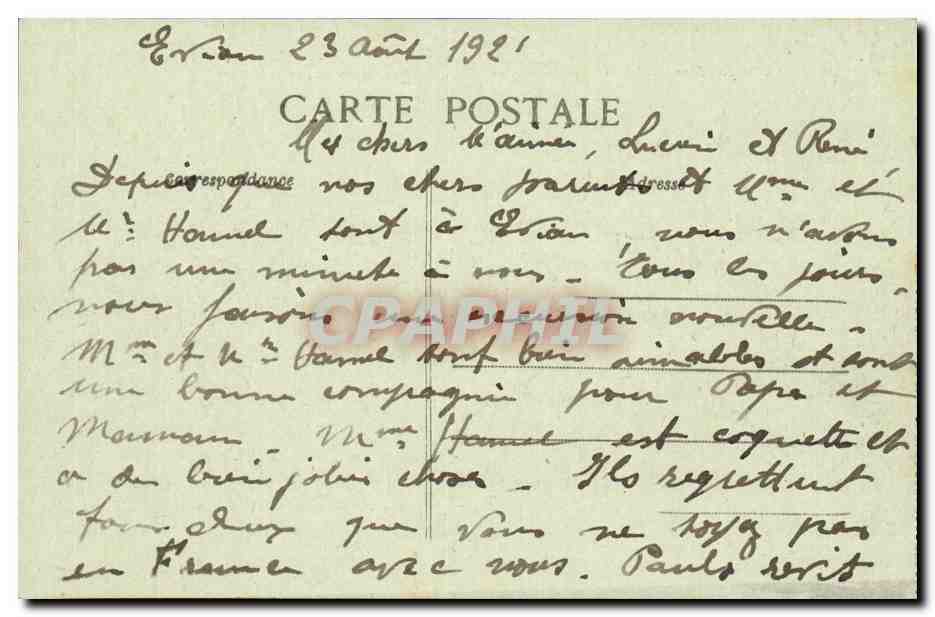 Evian 23 Août 1921
CARTE POSTALE
Mes chers bien aimés, Lucien et René
Correspondance
Adresse
Depuis que nos chers parents et Mme et
Mr Hamel sont à Evian, nous n'avons
pas une minute à nous. Tous les jours,
nous faisons une excursion nouvelle.
CPAPHIL
Mme et Mr Hamel sont bien aimables et sont
une bonne compagnie pour Papa et
Maman. Mme Hamel est coquette et
a de bien jolies choses. Ils regrettent
tous deux que vous ne soyez pas
en France avec nous. Paulo revit